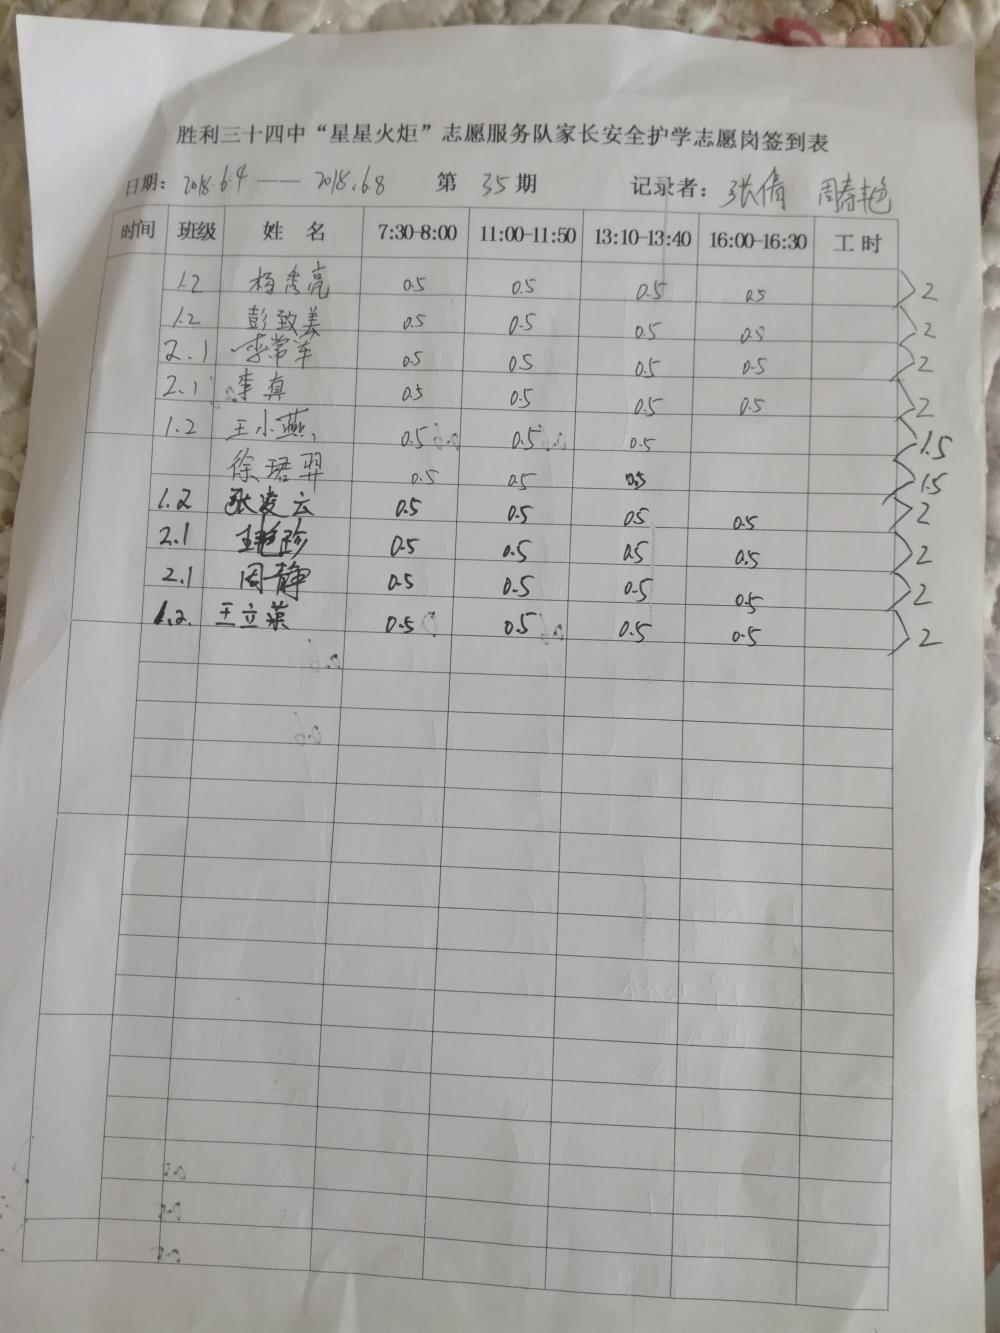 胜利三十四中“星星火炬”志愿服务队家长安全护学志愿岗签到表
日期：2018.6.4——2018.6.8 第35期 记录者：张倩 周春艳
时间 班级 姓名 7:30-8:00 11:00-11:50 13:10-13:40 16:00-16:30 工时
1.2 杨秀亮 0.5 0.5 0.5 0.5 2
1.2 彭致美 0.5 0.5 0.5 0.5 2
2.1 李常军 0.5 0.5 0.5 0.5 2
2.1 李真 0.5 0.5 0.5 0.5 2
1.2 王小燕 0.5 0.5 0.5 1.5
徐珺羿 0.5 0.5 0.5 1.5
1.2 张凌云 0.5 0.5 0.5 0.5 2
2.1 王艳珍 0.5 0.5 0.5 0.5 2
2.1 周静 0.5 0.5 0.5 0.5 2
1.2. 王立 0.5 0.5 0.5 0.5 2